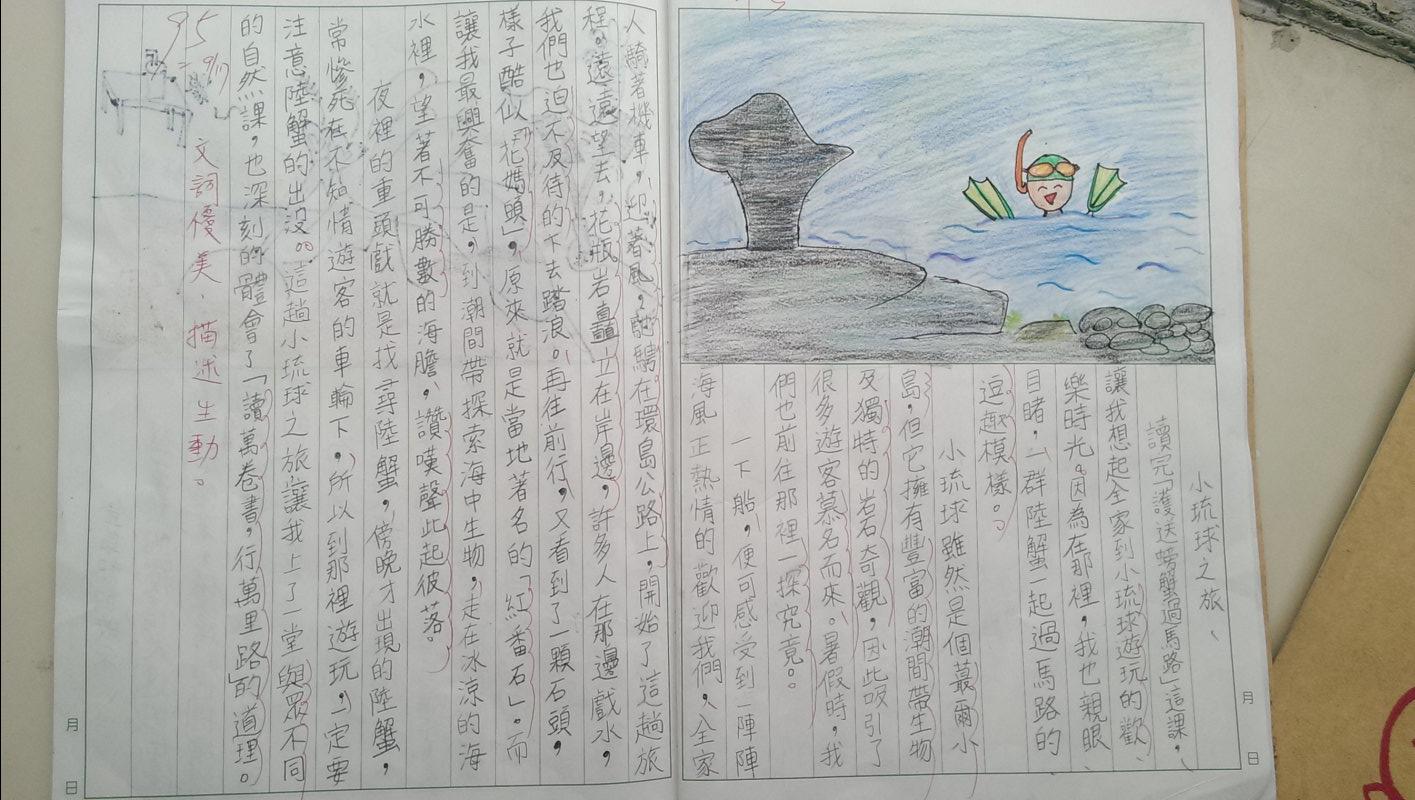 小琉球之旅
讀完「護送螃蟹過馬路」這課，
讓我想起全家到小琉球遊玩的歡
樂時光。因為在那裡，我也親眼
目睹，一群陸蟹一起過馬路的
逗趣模樣。
小琉球雖然是個蕞爾小
島，但它擁有豐富的潮間帶生物
及獨特的岩石奇觀，因此吸引了
很多遊客慕名而來。暑假時，我
們也前往那裡一探究竟。
一下船，便可感受到一陣陣
海風正熱情的歡迎我們，全家
人騎著機車，迎著風，馳騁在環島公路上，開始了這趟旅
程。遠遠望去，花瓶岩矗立在岸邊，許多人在那邊戲水，
我們也迫不及待的下去踏浪。再往前行，又看到了一顆石頭，
樣子酷似「花媽頭」，原來就是當地著名的「紅番石」。而
讓我最興奮的是，到潮間帶探索海中生物，走在冰涼的海
水裡，望著不可勝數的海膽，讚嘆聲此起彼落。
夜裡的重頭戲就是找尋陸蟹，傍晚才出現的陸蟹，
常慘死在不知情遊客的車輪下，所以到那裡遊玩，一定要
注意陸蟹的出沒。這趟小琉球之旅讓我上了一堂與眾不同
的自然課，也深刻的體會了「讀萬卷書，行萬里路」的道理。
文詞優美、描述生動。
95
9/17
月 日
月 日